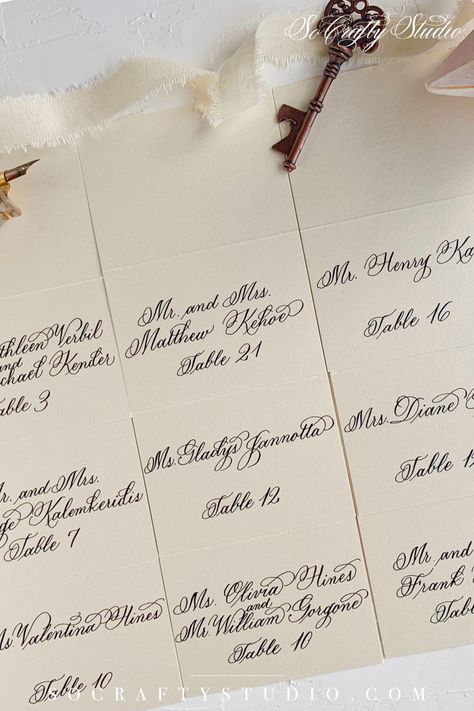 SoCrafty Studio
Mr. Henry
Table 16
Mr. and Mrs.
Matthew Kehoe
Table 21
Verbil
and
Kender
Table 3
Mrs. Diane
Table
Ms. Gladys Iannotta
Table 12
Mr. and Mrs.
Kalemkeridis
Table 7
Mr and
Frank
Table
Ms. Olivia Hines
and
Mr. William Gorgone
Table 10
Ms Valentina Hines
Table 10
SOCRAFTYSTUDIO.COM